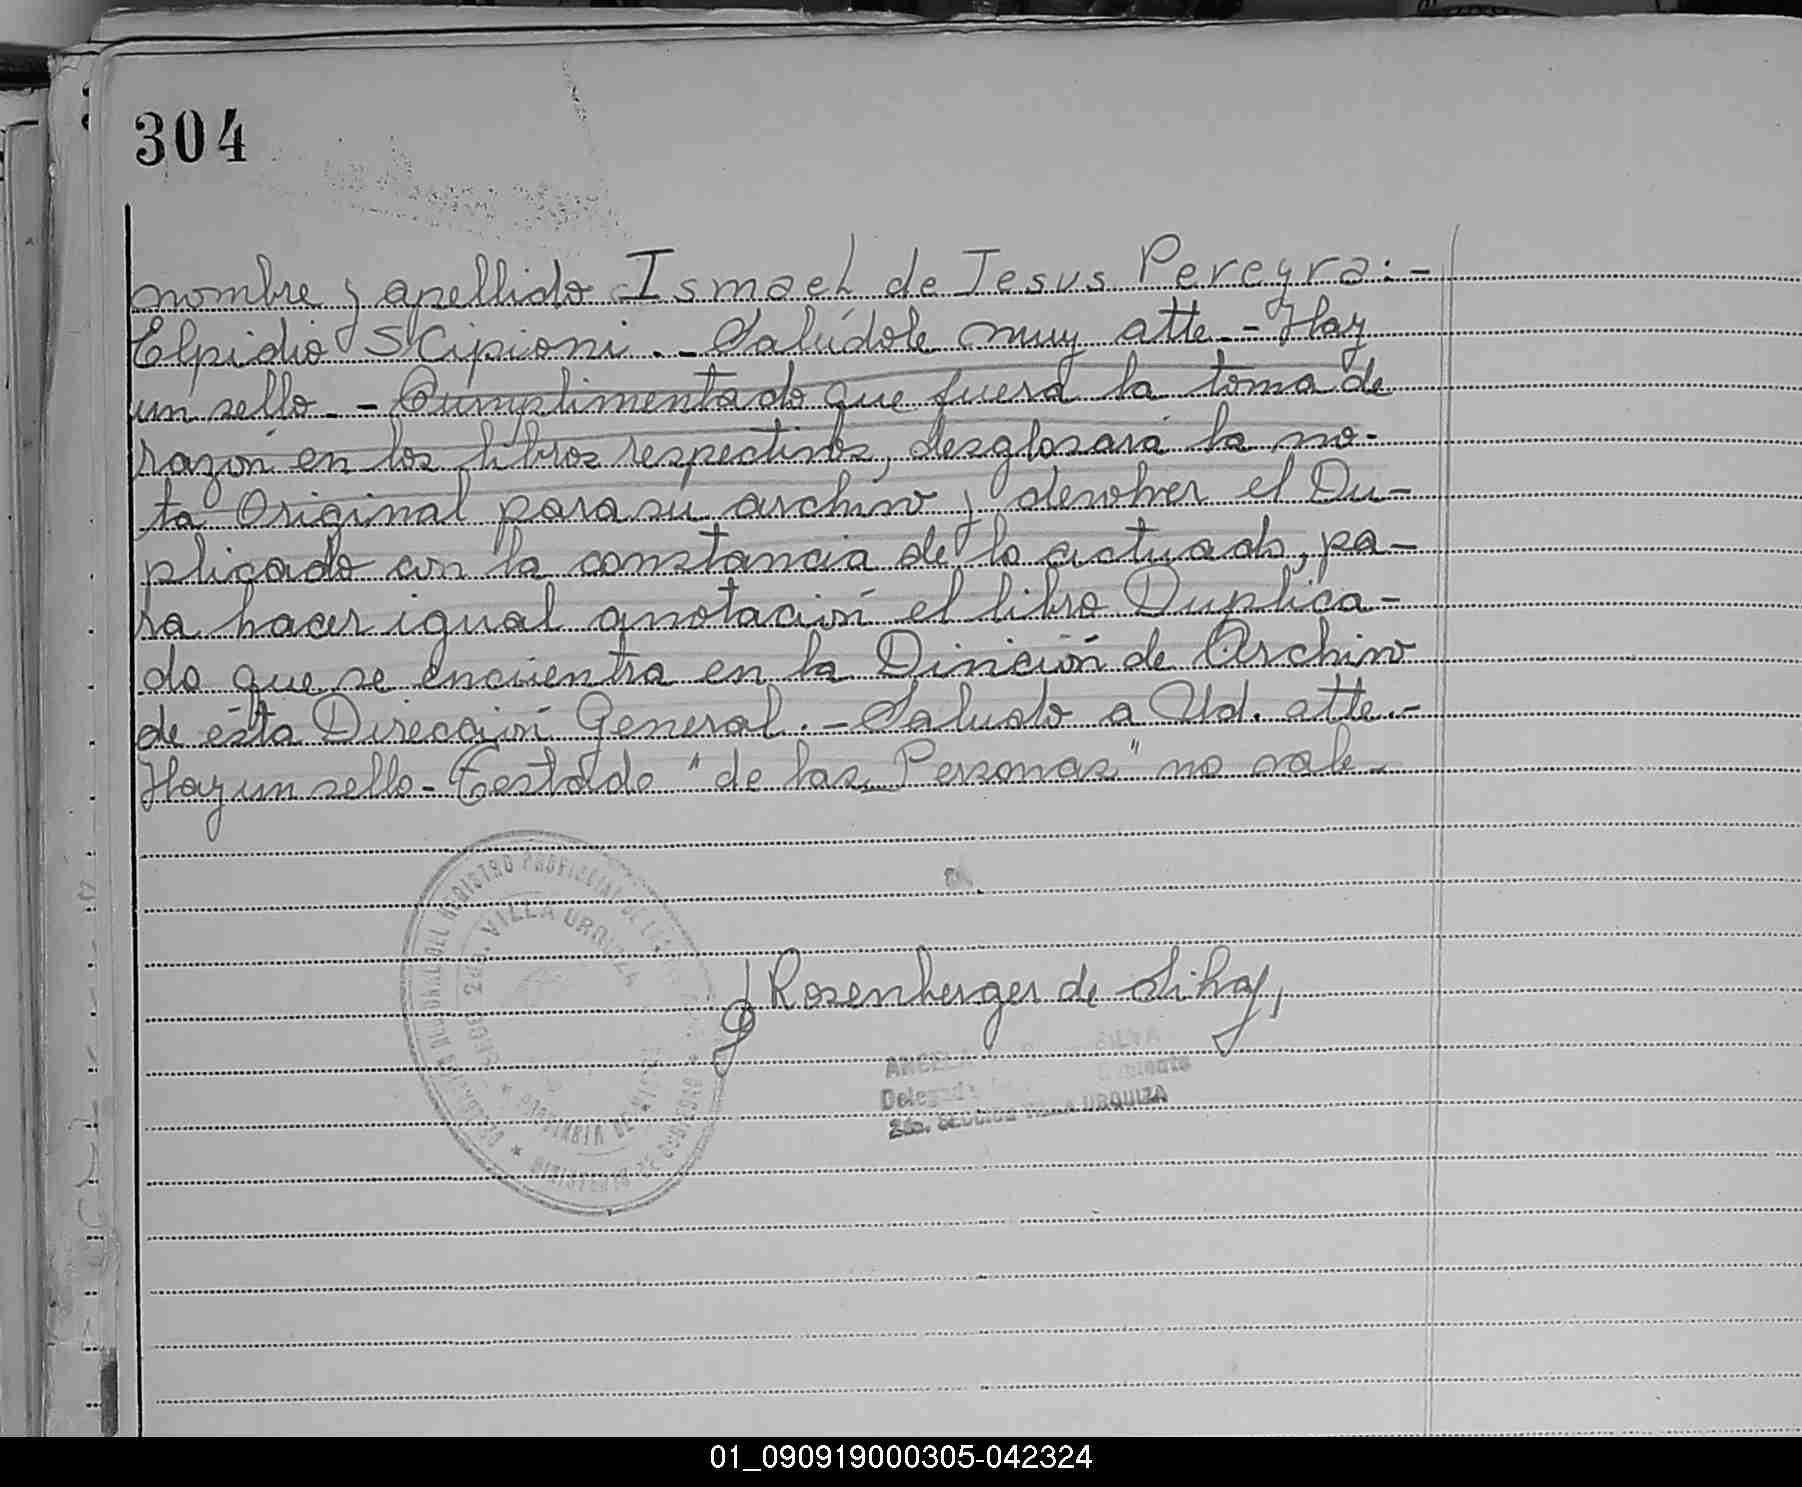 304
nombre y apellido Ismael de Jesus Pereyra:-
Elpidio Scipioni.-Salúdole muy atte.-Hay
un sello.-Cumplimentado que fuera la toma de
razón en los libros respectivos, desglosará la no-
ta Original para su archivo y devolver el Du-
plicado con la constancia de lo actuado, pa-
ra hacer igual anotación el libro Duplica-
do que se encuentra en la Division de Archivo
de ésta Dirección General.-Saludo a Ud. atte.-
Hay un sello-Testado "de las Personas" no vale-
REGISTRO
2da. VILLA URQUIZA
Rosenberger de
Delegada
2da. SECCION VILLA URQUIZA
01_090919000305-042324